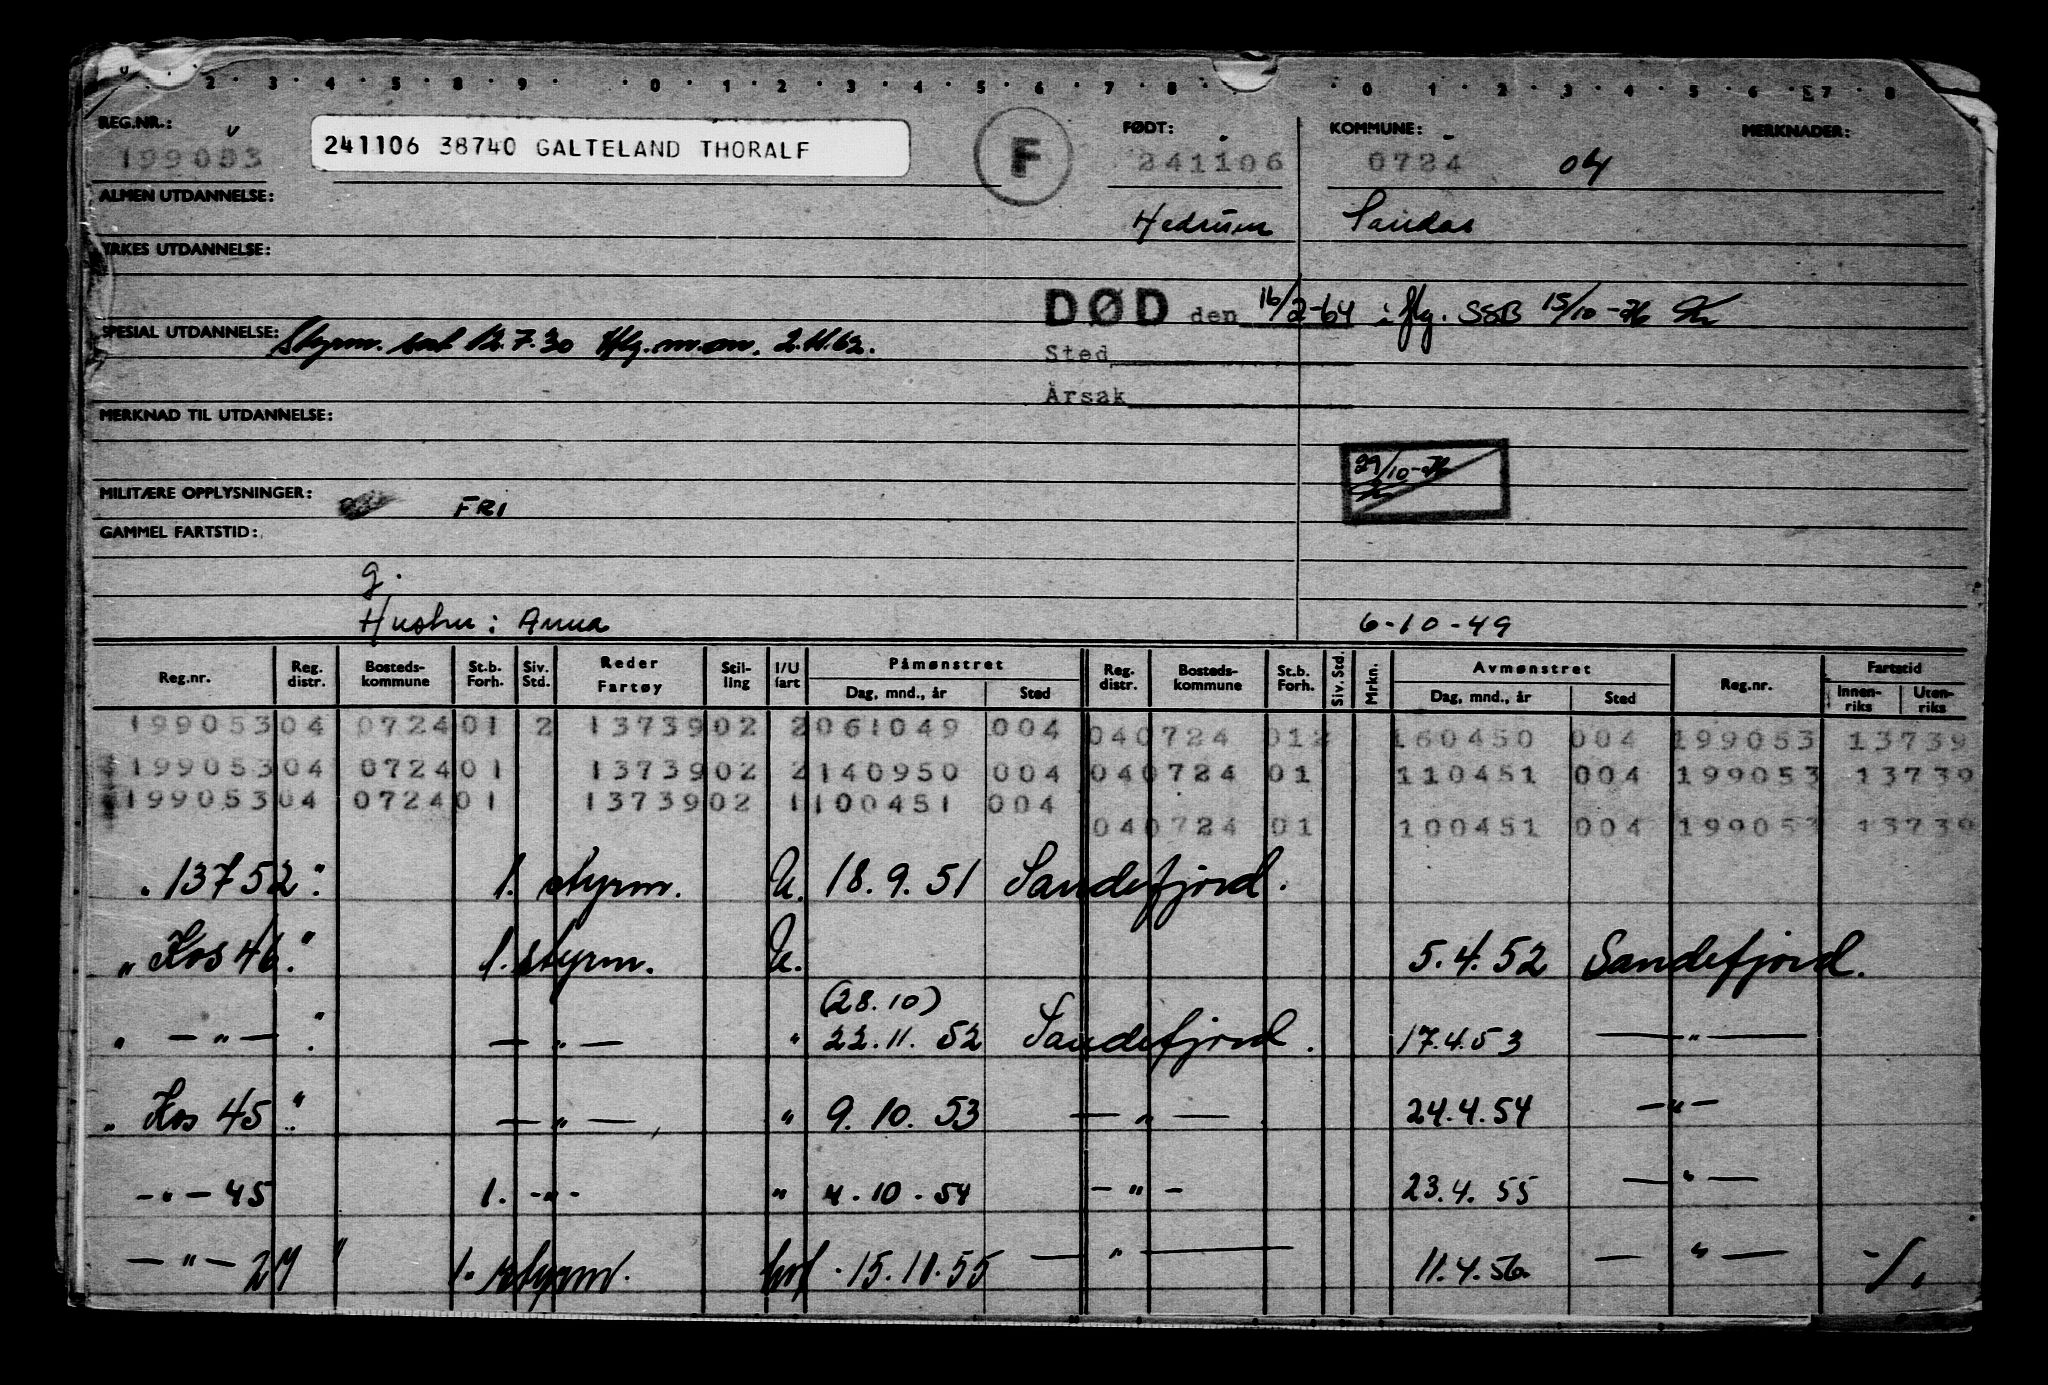 REG.NR.: 199053
241106 38740 GALTELAND THORALF
F
FØDT: 241106
KOMMUNE: 0724 04
MERKNADER:
ALMEN UTDANNELSE:
Hedrum Sandar
YRKES UTDANNELSE:
DØD den 16/2-64 iflg. SSB 15/10-76
SPESIAL UTDANNELSE: Styrm. sert 12.7.30
Sted
Årsak
MERKNAD TIL UTDANNELSE:
29/10-76
MILITÆRE OPPLYSNINGER: FRI
GAMMEL FARTSTID:
g.
Hustru: Anna 6-10-49
Reg.nr. Reg. distr. Bosteds-kommune St.b. Forh. Siv. Std. Reder Fartøy Stil-ling I/U fart Påmønstret Dag, mnd., år Sted Reg. distr. Bosteds-kommune St.b. Forh. Siv. Std. Mrkn. Avmønstret Dag, mnd., år Sted Reg.nr. Fartstid Innen-riks Uten-riks
199053 04 0724 01 2 13739 02 2 061049 004 04 0724 01 2 160450 004 199053 13739
199053 04 0724 01 13739 02 2 140950 004 04 0724 01 110451 004 199053 13739
199053 04 0724 01 13739 02 1 100451 004
04 0724 01 100451 004 199053 13739
" 13752 " 1. styrm. U. 18.9.51 Sandefjord.
" Kos 46 " 1. styrm. U. 5.4.52 Sandefjord.
" — " — " — " — " (28.10) 22.11.52 Sandefjord. 17.4.53 — " —
" Kos 45 " — " — " 9.10.53 — " — 24.4.54 — " —
— " — 45 1. — " — " 4.10.54 — " — 23.4.55 — " —
— " — 27 " 1. styrm. hvf. 15.11.55 — " — 11.4.56 — " —